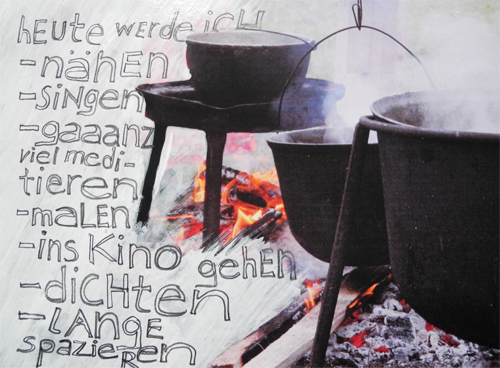 hEUTE WERDE iCH
-nähEN
-SiNgEN
-gaaanz
viel medi-
tieren
-maLEN
-ins KiNo gehEN
-diCHten
-LANGE
spazieREN